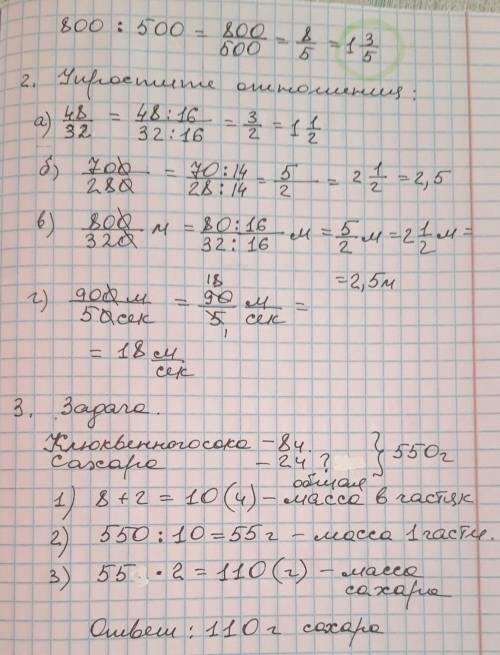 800 : 500 = 800/500 = 8/5 = 1 3/5
2. Упростите отношения:
а) 48/32 = 48:16/32:16 = 3/2 = 1 1/2
б) 700/280 = 70:14/28:14 = 5/2 = 2 1/2 = 2,5
в) 800/320 м = 80:16/32:16 м = 5/2 м = 2 1/2 м =
= 2,5м
г) 900 м/50 сек = 90 18/5 1 м/сек =
= 18 м/сек
3. Задача.
Клюквенного сока – 8ч.
Сахара – 2ч ? } 550г
общая
1) 8 + 2 = 10 (ч) – масса в частях
2) 550 : 10 = 55 г – масса 1 части.
3) 55 · 2 = 110 (г) – масса
сахара
Ответ : 110 г сахара